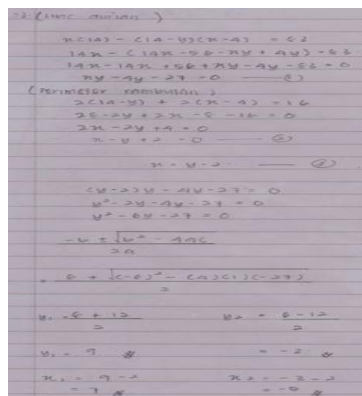 x(14) - (14-y)(x-4) = 83
14x - (14x - 56 - xy + 4y) = 83
14x - 14x + 56 + xy - 4y - 83 = 0
xy - 4y - 27 = 0
(Perimeter
2(14-y) + 2(x-4) = 16
28 - 2y + 2x - 8 - 16 = 0
2x - 2y + 4 = 0
x - y + 2 = 0
x = y - 2
(y-2)y - 4y - 27 = 0
y² - 2y - 4y - 27 = 0
y² - 6y - 27 = 0
-b ± √b² - 4ac
2a
= 6 ± √(-6)² - (4)(1)(-27)
2
y₁ = 6 + 12 y₂ = 6 - 12
2 2
y₁ = 9 = -3
x₁ = 9 - 2 x₂ = -3 - 2
= 7